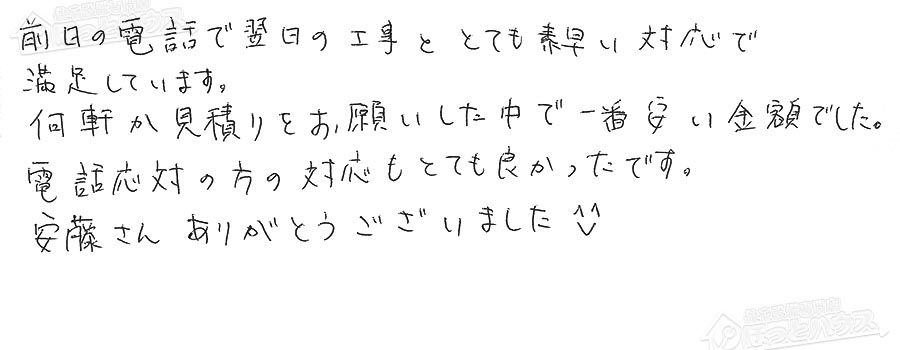 前日の電話で翌日の工事と とても素早い対応で
満足しています。
何軒か見積りをお願いした中で一番安い金額でした。
電話応対の方の対応もとても良かったです。
安藤さん ありがとうございました ^^
ほっとハウス